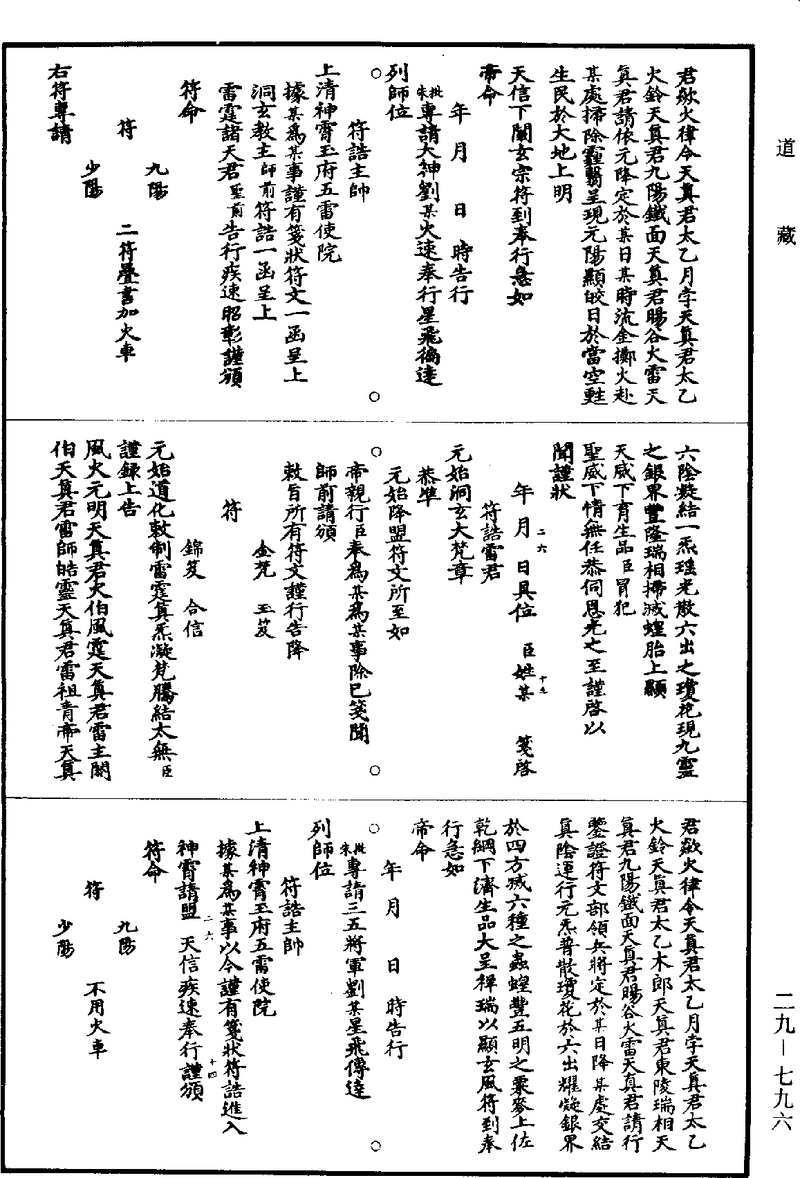 道藏
君歘火律令天真君太乙月孛天真君太乙
火鈴天真君九陽鐵面天真君暘谷火雷天
真君請依元降定於某日某時流金擲火赴
某處掃除靉翳呈現元陽顯皎日於當空甦
生民於大地上明
天信下闡玄宗符到奉行急如
帝命
年月日時告行
朱批專請大神劉某火速奉行星飛徧達
列師位
符誥主帥
上清神霄玉府五雷使院
據某為某事謹有箋狀符文一函呈上
洞玄教主師前符誥一函呈上
雷霆諸天君聖前告行疾速昭彰謹頒
符命
九陽
符　二符疊書加火車
少陽
右符專請
六陰凝結一炁瑤光散六出之瓊花現九靈
之銀界豐隆瑞相掃滅蝗胎上顯
天威下育生品臣冒犯
聖威下情無任恭伺恩光之至謹啓以
聞謹狀
二六　十七
年月日具位　臣姓某　箋啓
符誥雷君
元始洞玄大梵章
恭準
元始降盟符文所至如
帝親行臣奉為某為某事除已箋聞
師前請頒
敕旨所有符文謹行告降
金梵　玉笈
符
錦笈　合信
元始道化敕制雷霆真炁凝梵騰結太無臣
謹錄上告
風火元明天真君火伯風霆天真君雷主閼
伯天真君雷師皓靈天真君雷祖青帝天真
君歘火律令天真君太乙月孛天真君太乙
火鈴天真君太乙木郎天真君東陵瑞相天
真君九陽鐵面天真君暘谷火雷天真君請行
鑒證符文部領兵將定於某日降某處交結
真陰運行元炁普散瓊花於六出耀凝銀界
於四方滅六種之蟲蝗豐五明之粟麥上佐
乾綱下濟生品大呈禪瑞以顯玄風符到奉
行急如
帝命
年月日時告行
朱批專請三五將軍劉某星飛傳達
列師位
符誥主帥
上清神霄玉府五雷使院
據某為某事以今謹有箋狀符誥進入
二六　十四
神霄請盟　天信疾速奉行謹頒
符命
九陽
符　不用火車
少陽
二九—七九六